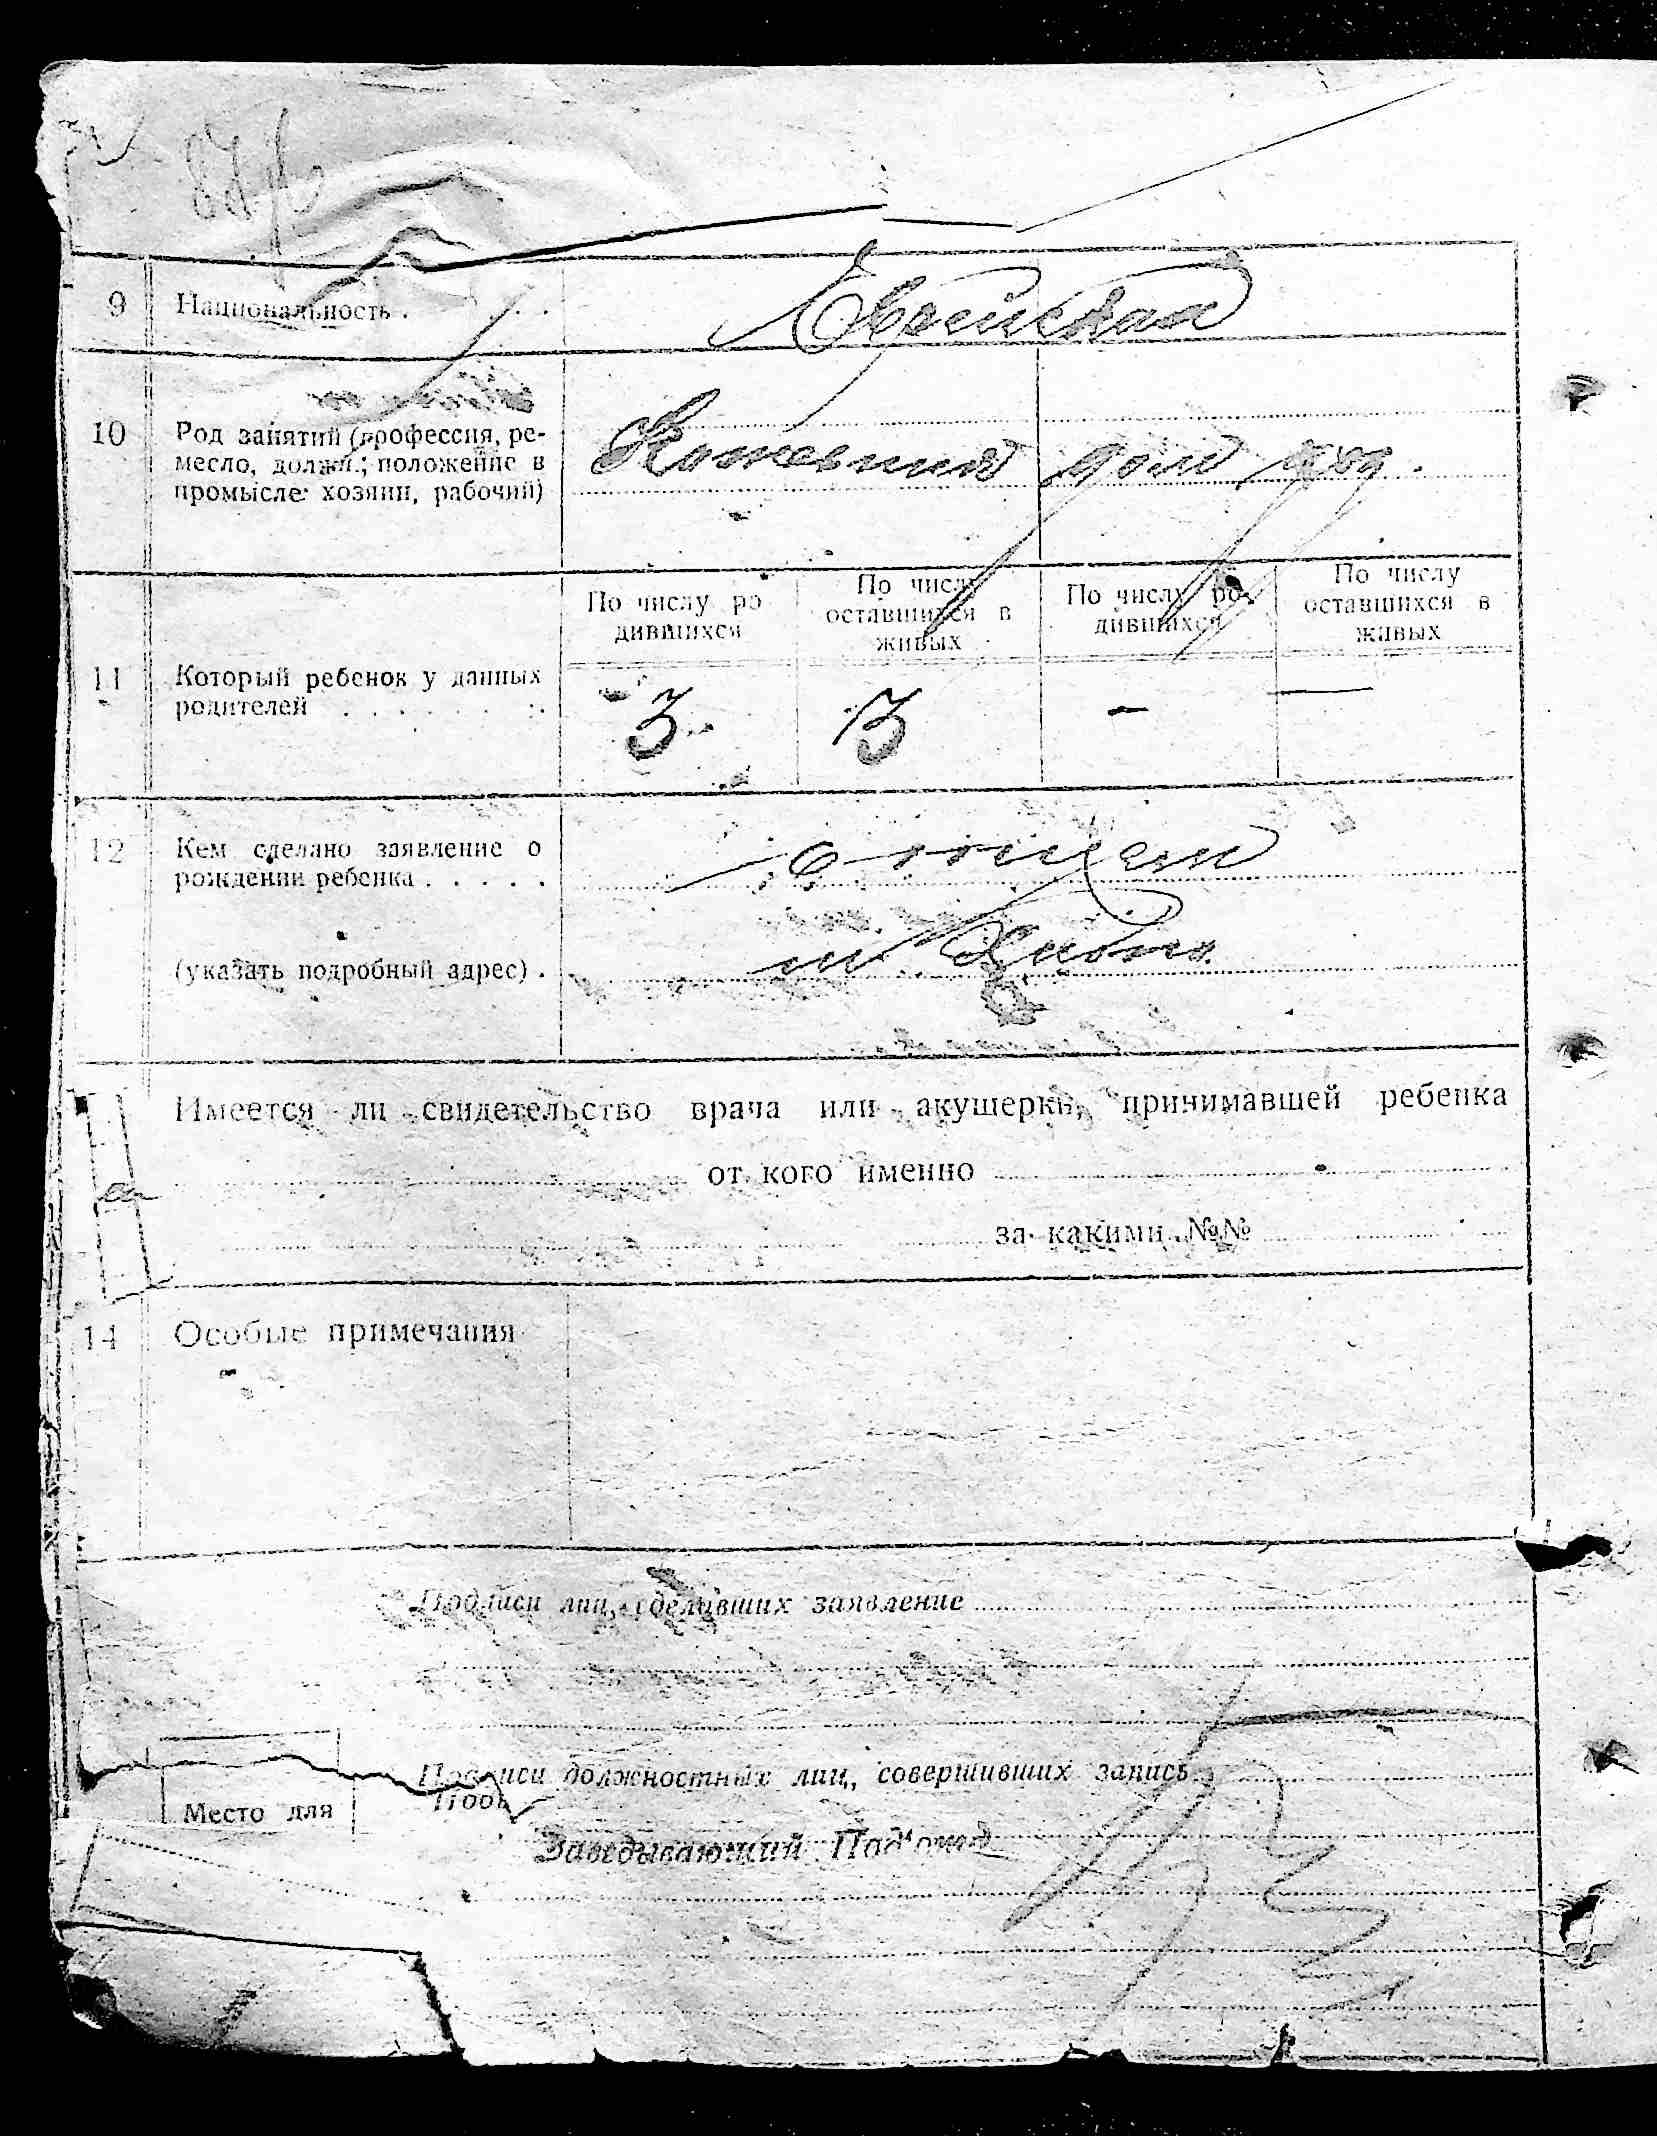 9 Национальность . . . .
Еврейская
10 Род занятий (профессия, ре-
месло, должн.; положение в
промысле: хозяин, рабочий)
дом
11 Который ребенок у данных
родителей . . . . . . .
По числу ро
дившихся
По числу
оставшихся в
живых
По числу ро-
дившихся
По числу
оставшихся в
живых
3 3 - —
12 Кем сделано заявление о
рождении ребенка . . . . .
отцем
(указать подробный адрес) .
м
Имеется ли свидетельство врача или акушерки, принимавшей ребенка
от кого именно
за какими №№
14 Особые примечания
Подписи лиц, сделавших заявление
Подписи должностных лиц, совершивших запись
Место для
Заведывающий Под'отд